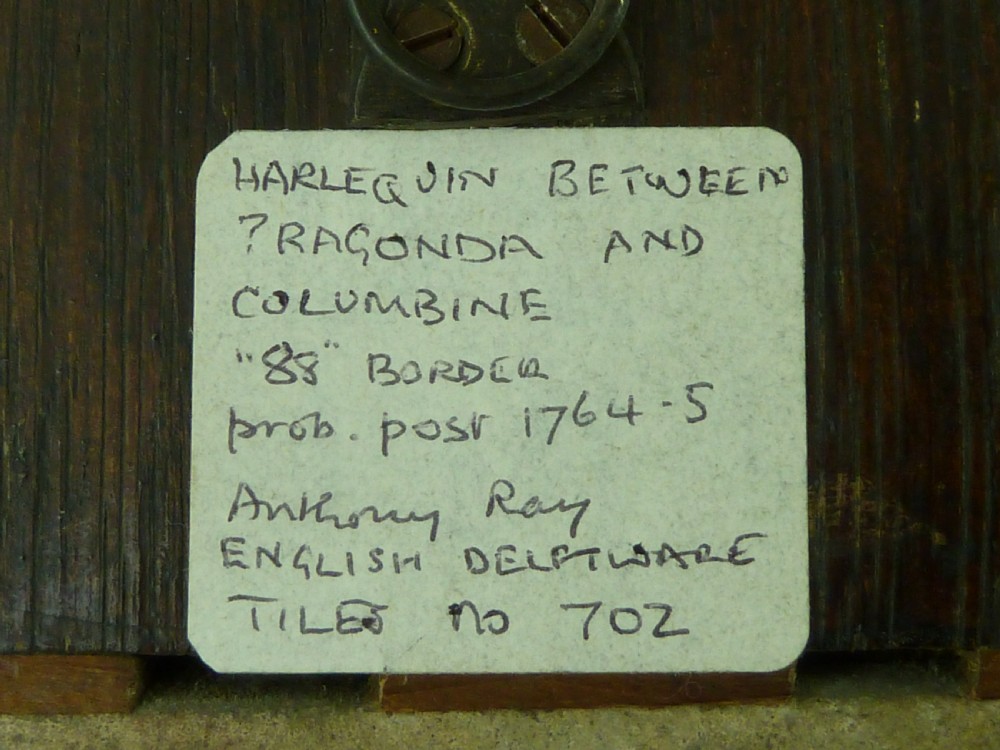 HARLEQUIN BETWEEN
?RAGONDA AND
COLUMBINE
"88" BORDER
prob. post 1764-5
Anthony Ray
ENGLISH DELFTWARE
TILES no 702